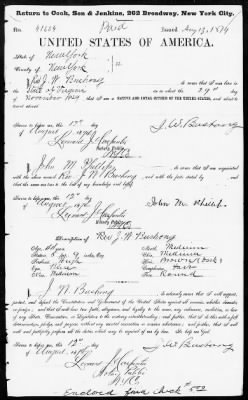 Return to Cook, Son & Jenkins, 262 Broadway, New York City.
Paid
No. 41669 Issued Aug 13, 1874
UNITED STATES OF AMERICA.
State of New York
County of New York
I, Rev J. W. Bushong do swear that I was born in the
State of Virginia on the 29th day of
November 1829 that I am a NATIVE AND LOYAL CITIZEN OF THE UNITED STATES, and about to
travel abroad.
Sworn to before me, this 12th day
of August 1874
J. W. Bushong
Notary Public
N.Y.Co.
I, John M. Phillips do swear that I am acquainted
with the above named Rev J. W. Bushong and with the facts stated by
and that the same are true to the best of my knowledge and belief.
Sworn to before me, this 12th day
of August 1874
John M. Phillips
Notary Public
Description of Rev J. W. Bushong
Age: 44 years
Mouth: Medium
Stature: 5 feet inches, Eng.
Chin: Medium
Forehead: High
Hair: Brown (dark)
Eyes: Blue
Complexion: Fair
Nose: Medium
Face: Round
I, J. W. Bushong do solemnly swear that I will support,
protect, and defend the Constitution and Government of the United States against all enemies, whether domestic
or foreign; and that I will bear true faith, allegiance, and loyalty to the same, any ordinance, resolution, or law
of any State, Convention, or Legislature to the contrary notwithstanding; and further, that I do this with a full
determination, pledge, and purpose, without any mental reservation or evasion whatsoever; and further, that I will
well and faithfully perform all the duties which may be required of me by law. So help me God.
Sworn to before me, this 12th day
of August, 1874
J. W. Bushong
Notary Public
N.Y.Co.
Enclosed find check